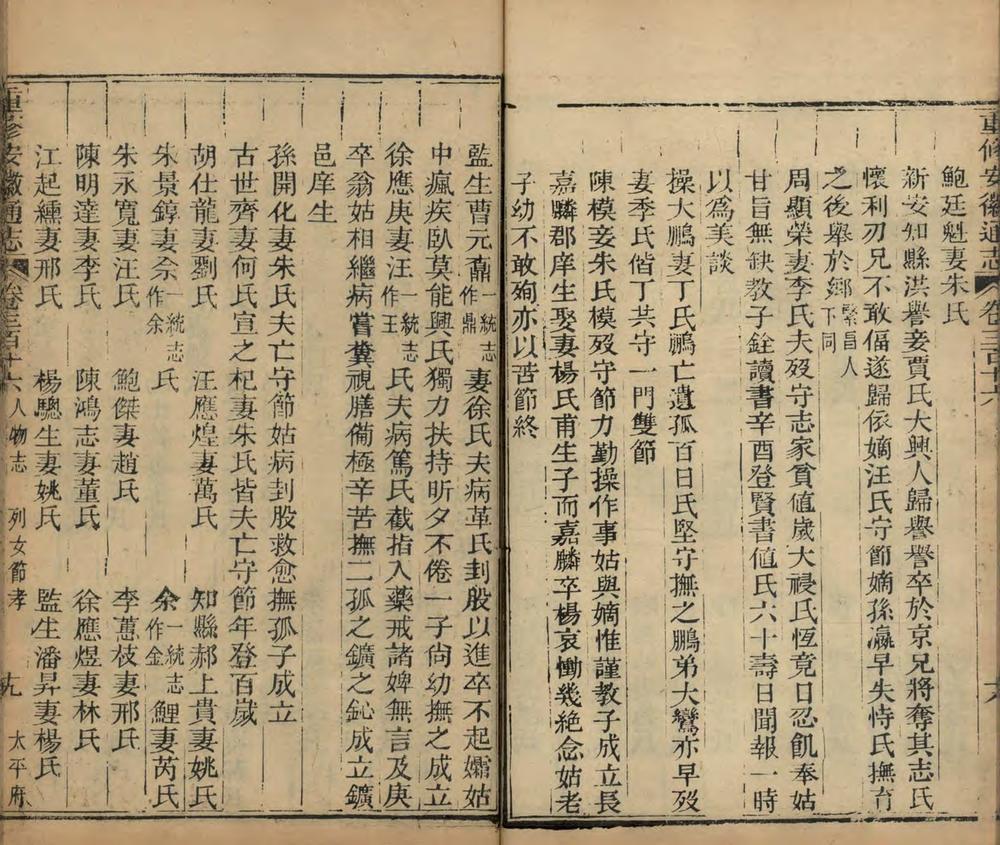 重修安徽通志 卷二百十六 大
鮑廷魁妻朱氏
新安知縣洪譽妾賈氏大興人歸譽譽卒於京兄將奪其志氏
懷利刃兄不敢偪遂歸依嫡汪氏守節嫡孫瀛早失恃氏撫育
之後舉於鄉繫昌人下同
周顯榮妻李氏夫歿守志家貧值歲大祲氏恆竟日忍飢奉姑
甘旨無缺教子銓讀書辛酉登賢書值氏六十壽日聞報一時
以為美談
操大鵬妻丁氏鵬亡遺孤百日氏堅守撫之鵬弟大鸞亦早歿
妻季氏偕丁共守一門雙節
陳模妾朱氏模歿守節力勤操作事姑與嫡惟謹教子成立長
嘉麟郡庠生娶妻楊氏甫生子而嘉麟卒楊哀慟幾絕念姑老
子幼不敢殉亦以苦節終
監生曹元鼒一統志作鼎妻徐氏夫病革氏刲股以進卒不起孀姑
中瘋疾臥莫能興氏獨力扶持昕夕不倦一子尙幼撫之成立
徐應庚妻汪一統志作王氏夫病篤氏截指入藥戒諸婢無言及庚
卒翁姑相繼病嘗糞視膳備極辛苦撫二孤之鑛之鈊成立鑛
邑庠生
孫開化妻朱氏夫亡守節姑病刲股救愈撫孤子成立
古世齊妻何氏宣之杞妻朱氏皆夫亡守節年登百歲
胡仕龍妻劉氏 汪應煌妻萬氏 知縣郝上貴妻姚氏
朱景錞妻佘一統志作余氏 余一統志作金鯉妻芮氏
朱永寬妻汪氏 鮑傑妻趙氏 李蕙枝妻邢氏
陳明達妻李氏 陳鴻志妻董氏 徐應煜妻林氏
江起纁妻邢氏 楊驄生妻姚氏 監生潘昇妻楊氏
重修安徽通志 卷二百十六 人物志 列女節孝 九 太平府